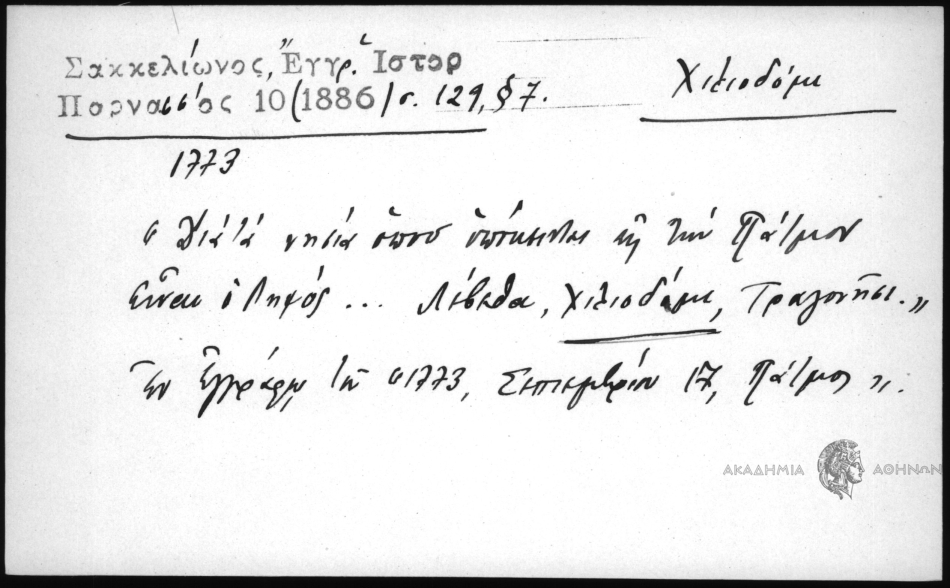 Σακκελίωνος, Ἔγγρ. Ἱστορ
Παρνασσὸς 10 (1886) σ. 129, § 7.
Χιλιοδόμι
1773
νησιὰ ὁποῦ ὑπόκεινται εἰς τὴν Πάτμον
εἶναι ὁ Ληψός ... Λέβιθα, Χιλιοδόμι, Τραγονῆσι."
Ἐν ἐγγράφῳ τοῦ "1773, Σεπτεμβρίου 17, Πάτμος".
ΑΚΑΔΗΜΙΑ ΑΘΗΝΩΝ